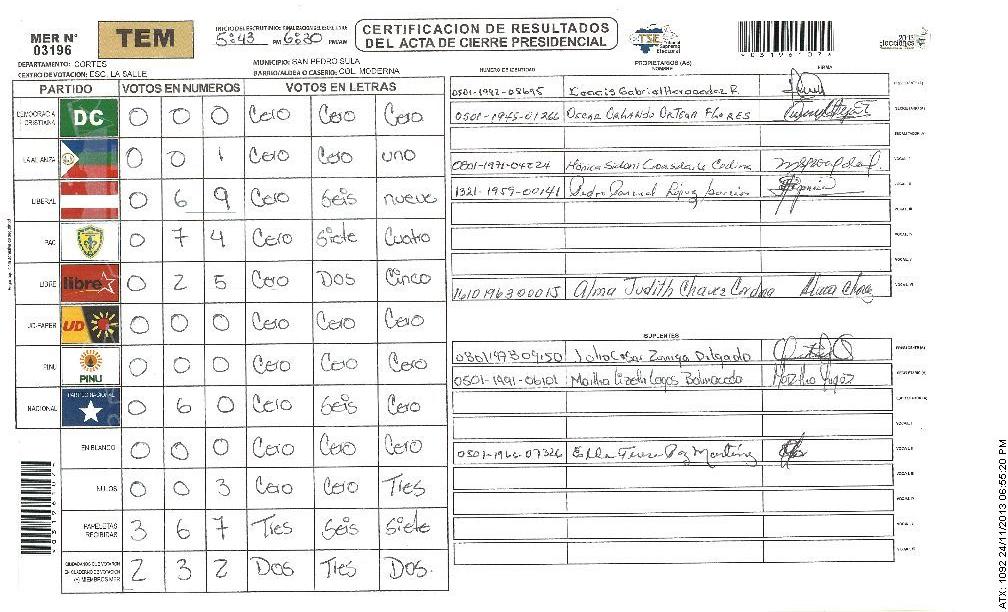 MER N° 03196
TEM
INICIO DEL ESCRUTINIO: FINALIZACION DEL ESCRUTINIO
5:43 PM 6:30 PM/AM
CERTIFICACION DE RESULTADOS
DEL ACTA DE CIERRE PRESIDENCIAL
TSE
Tribunal Supremo Electoral
2013
elecciones
0 3 1 9 6 1 0 7
DEPARTAMENTO: CORTES
MUNICIPIO: SAN PEDRO SULA
CENTRO DE VOTACION: ESC. LA SALLE
BARRIO/ALDEA O CASERIO: COL. MODERNA
PARTIDO VOTOS EN NUMEROS VOTOS EN LETRAS
DEMOCRACIA CRISTIANA DC 0 0 0 Cero Cero Cero
LA ALIANZA 0 0 1 Cero Cero uno
LIBERAL 0 6 9 Cero Seis nueve
PAC 0 7 4 Cero Siete Cuatro
LIBRE libre 0 2 5 Cero Dos Cinco
UD-FAPER UD 0 0 0 Cero Cero Cero
PINU PINU 0 0 0 Cero Cero Cero
NACIONAL PARTIDO NACIONAL 0 6 0 Cero Seis Cero
EN BLANCO 0 0 0 Cero Cero Cero
NULOS 0 0 3 Cero Cero Tres
PAPELETAS RECIBIDAS 3 6 7 Tres Seis Siete
CIUDADANOS QUE VOTARON EN CUADERNO DE VOTACION (+) MIEMBROS MER 2 3 2 Dos Tres Dos.
NUMERO DE IDENTIDAD PROPIETARIOS (AS) NOMBRE FIRMA
0501-1992-08695 Gabriel Hernandez R.
0501-1945-01266 Oscar Orlando Ortega Flores
0801-1971-04224
1321-1959-00141 Pedro
1610196300015 Alma Judith Chavez Alma Chavez
SUPLENTES
Julio Cesar Zuniga Delgado
0501-1991-06101 Martha Lizeth Lagos
0501-1966-07326
ATX: 1092 24/11/2013 06:55:20 PM